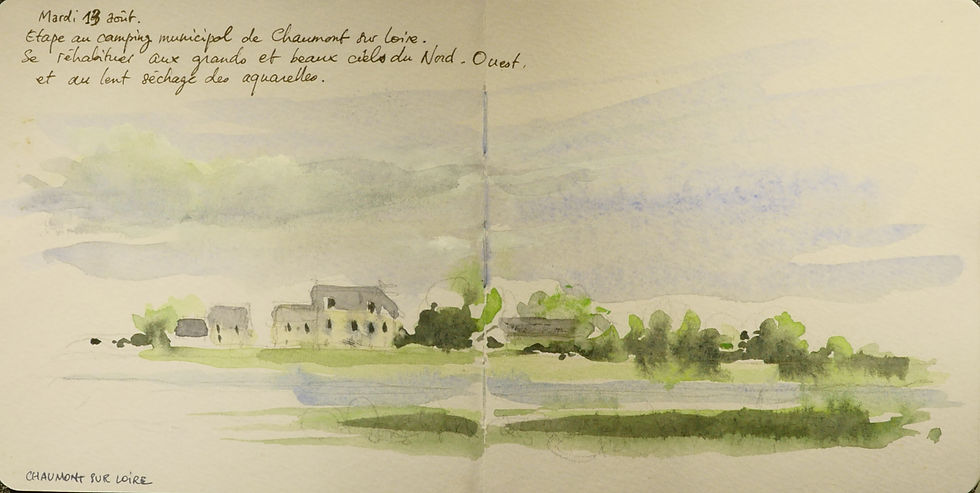 Mardi 13 août.
Etape au camping municipal de Chaumont sur Loire.
Se réhabituer aux grands et beaux ciels du Nord-Ouest,
et au lent séchage des aquarelles.
CHAUMONT SUR LOIRE